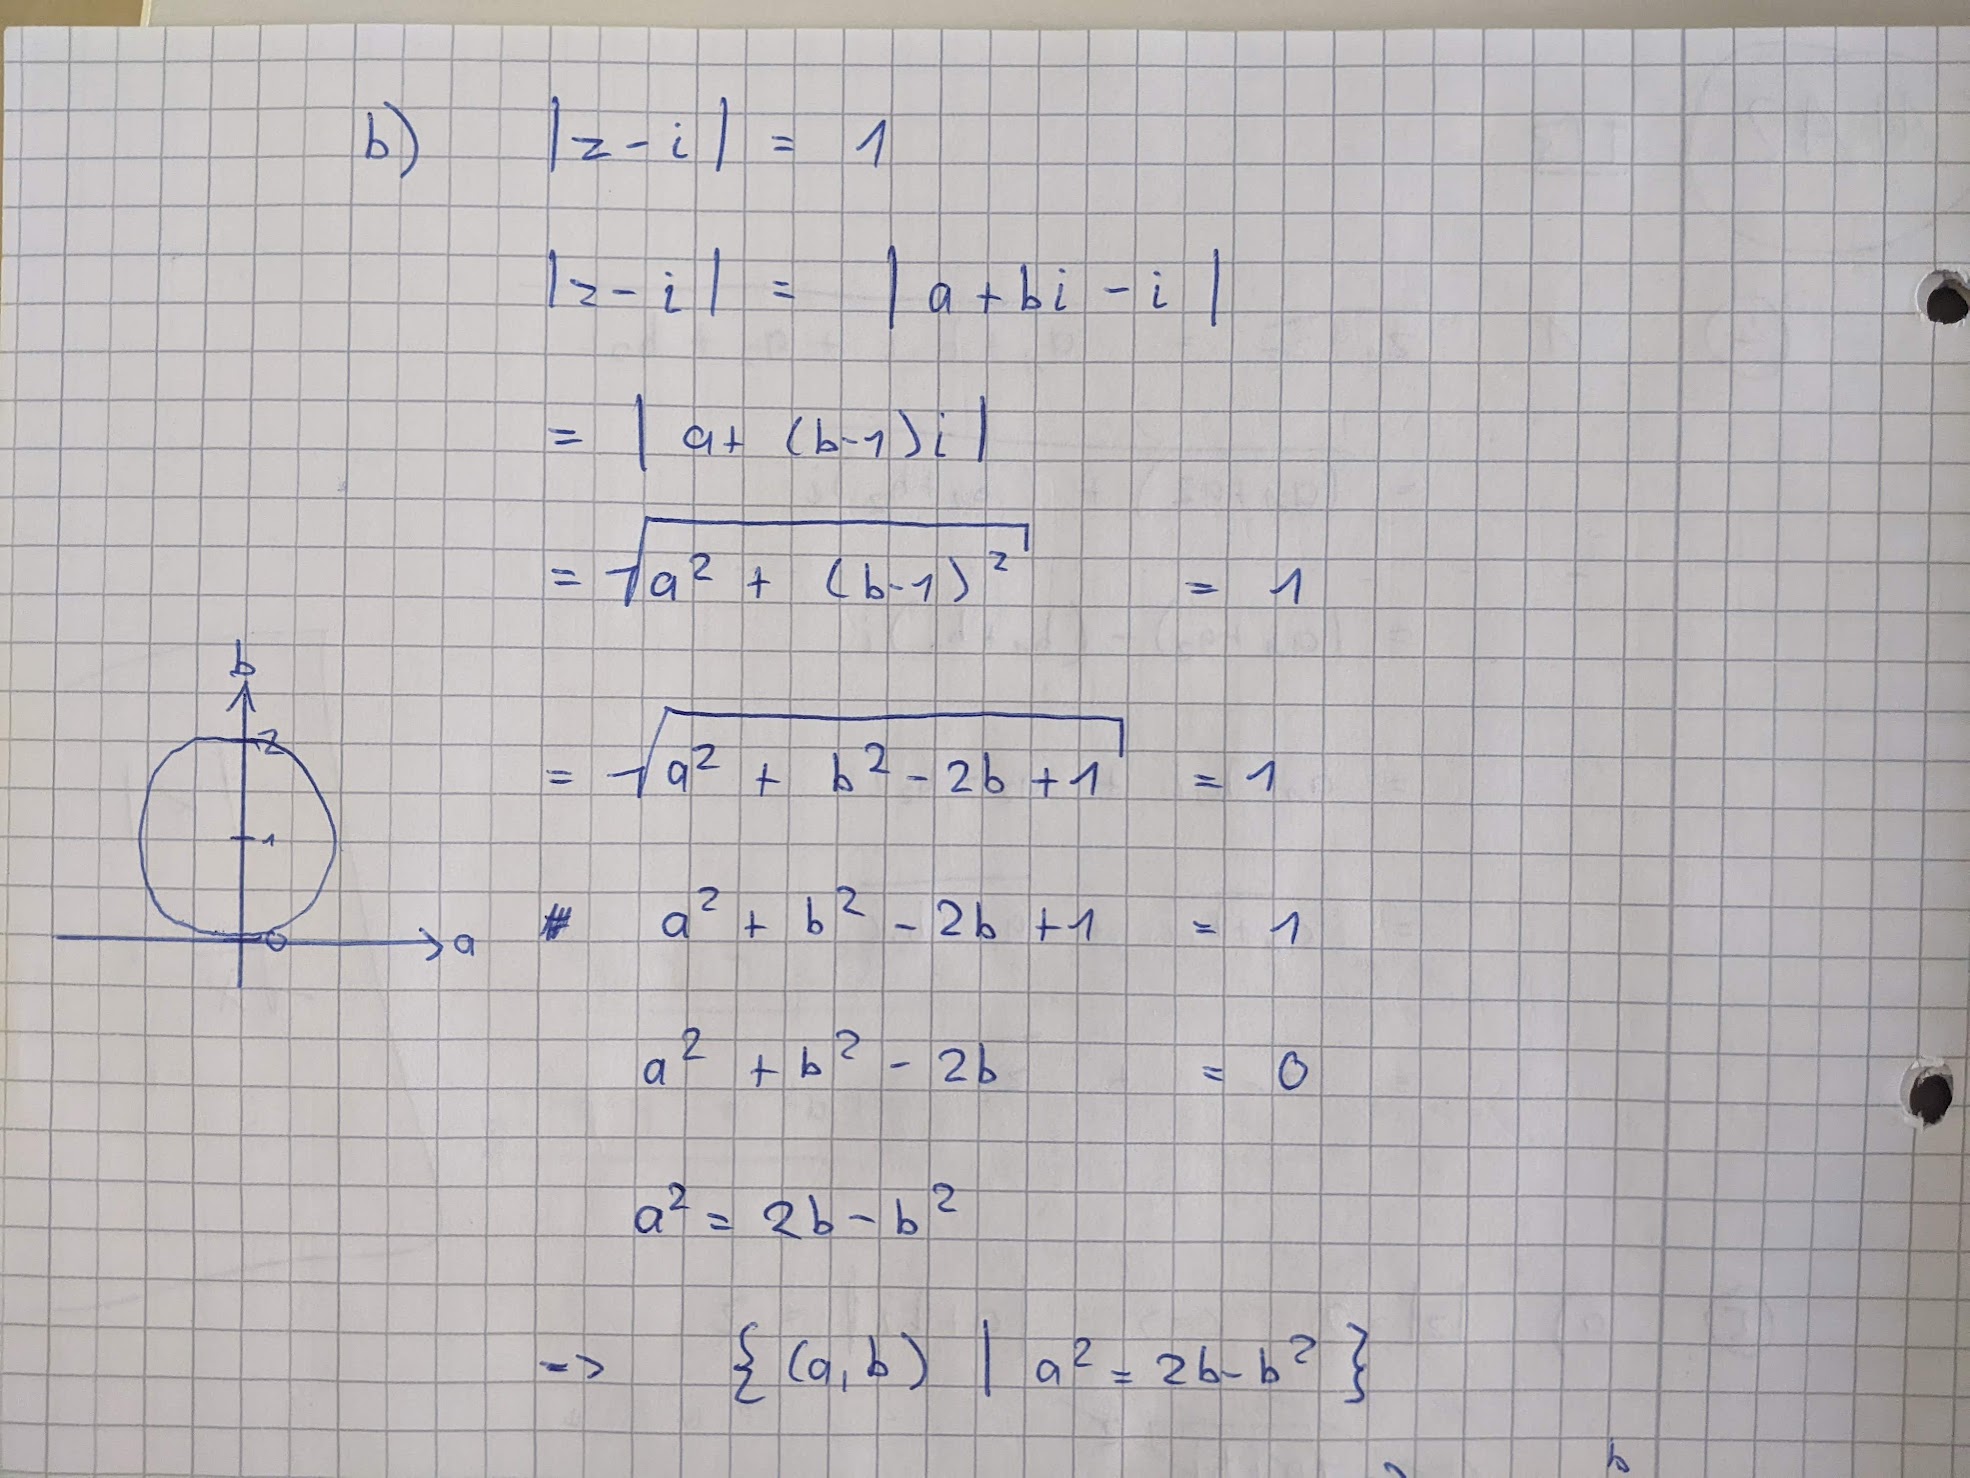 b) |z-i| = 1
|z-i| = |a+bi-i|
= |a+(b-1)i|
= √(a² + (b-1)²) = 1
= √(a² + b² - 2b + 1) = 1
a² + b² - 2b + 1 = 1
a² + b² - 2b = 0
a² = 2b - b²
=> {(a,b) | a² = 2b-b²}
b
2
1
0
a
b